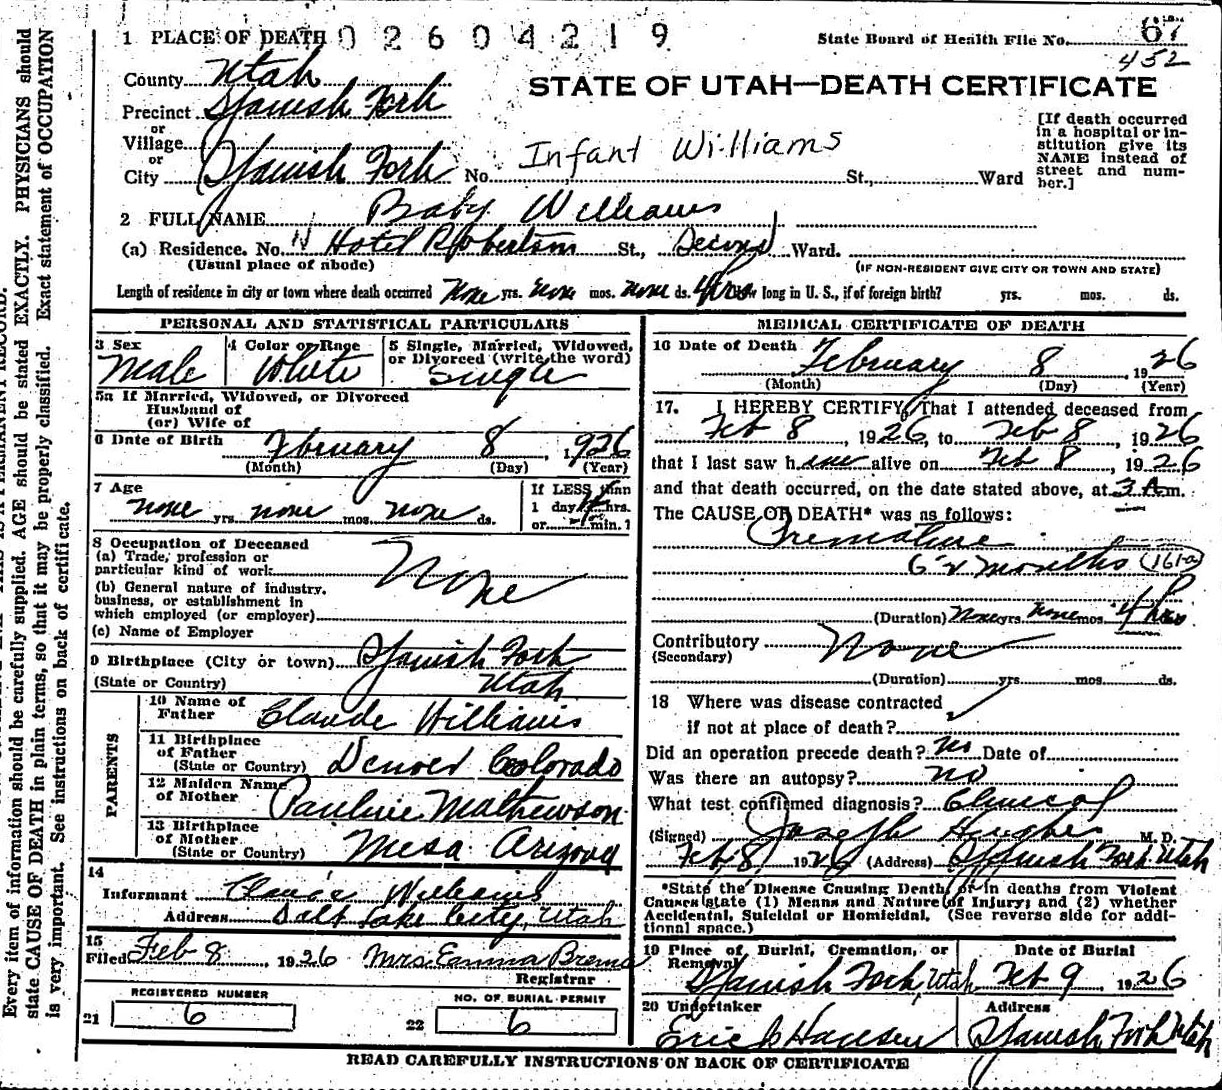 1 PLACE OF DEATH 0 2 6 0 4 2 1 9
State Board of Health File No. 67
452
County Utah
STATE OF UTAH—DEATH CERTIFICATE
Precinct Spanish Fork
or
Village
or
City Spanish Fork No. Infant Williams St., Ward
[If death occurred
in a hospital or in-
stitution give its
NAME instead of
street and num-
ber.]
2 FULL NAME Baby Williams
(a) Residence. No. Hotel Robertson St., Second Ward.
(Usual place of abode)
(IF NON-RESIDENT GIVE CITY OR TOWN AND STATE)
Length of residence in city or town where death occurred None yrs. none mos. none ds. 4 hrs How long in U. S., if of foreign birth? yrs. mos. ds.
PERSONAL AND STATISTICAL PARTICULARS
3 Sex
Male
4 Color or Race
White
5 Single, Married, Widowed,
or Divorced (write the word)
Single
5a If Married, Widowed, or Divorced
Husband of
(or) Wife of
6 Date of Birth February 8, 1926
(Month) (Day) (Year)
7 Age
none yrs. none mos. none ds.
If LESS than
1 day 4 hrs.
or min.?
8 Occupation of Deceased
(a) Trade, profession or
particular kind of work
None
(b) General nature of industry,
business, or establishment in
which employed (or employer)
(c) Name of Employer
9 Birthplace (City or town) Spanish Fork
(State or Country) Utah
PARENTS
10 Name of
Father Claude Williams
11 Birthplace
of Father
(State or Country) Denver Colorado
12 Maiden Name
of Mother Pauline Mathewson
13 Birthplace
of Mother
(State or Country) Mesa Arizona
14
Informant Claude Williams
Address Salt Lake City, Utah
15
Filed Feb 8 1926 Mrs. Emma Brems
Registrar
REGISTERED NUMBER
21 6
NO. OF BURIAL PERMIT
22 6
MEDICAL CERTIFICATE OF DEATH
16 Date of Death February 8 1926
(Month) (Day) (Year)
17. I HEREBY CERTIFY, That I attended deceased from
Feb 8, 1926, to Feb 8, 1926
that I last saw him alive on Feb 8, 1926
and that death occurred, on the date stated above, at 3 A.m.
The CAUSE OF DEATH* was as follows:
Premature
6 1/2 months (161-a)
(Duration) None yrs. none mos. 4 hrs
Contributory None
(Secondary)
(Duration) yrs. mos. ds.
18 Where was disease contracted
if not at place of death?
Did an operation precede death? no Date of
Was there an autopsy? no
What test confirmed diagnosis? Clinical
(Signed) Joseph Hughes M. D.
Feb 8, 1926 (Address) Spanish Fork Utah
*State the Disease Causing Death, or in deaths from Violent
Causes state (1) Means and Nature of Injury; and (2) whether
Accidental, Suicidal or Homicidal. (See reverse side for addi-
tional space.)
19 Place of Burial, Cremation, or
Removal
Spanish Fork, Utah
Date of Burial
Feb 9 1926
20 Undertaker
Eric Hansen
Address
Spanish Fork Utah
READ CAREFULLY INSTRUCTIONS ON BACK OF CERTIFICATE
PERMANENT RECORD.
Every item of information should be carefully supplied. AGE should be stated EXACTLY. PHYSICIANS should
state CAUSE OF DEATH in plain terms, so that it may be properly classified. Exact statement of OCCUPATION
is very important. See instructions on back of certificate.